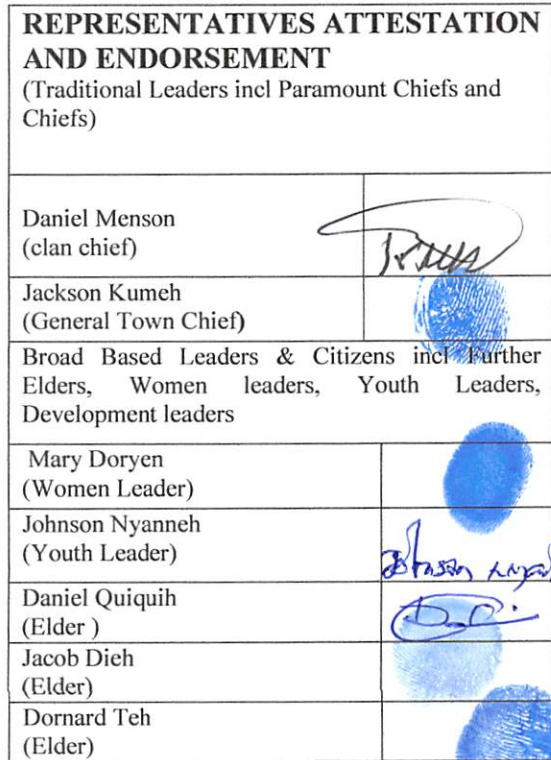 REPRESENTATIVES ATTESTATION
AND ENDORSEMENT
(Traditional Leaders incl Paramount Chiefs and
Chiefs)
Daniel Menson
(clan chief)
Jackson Kumeh
(General Town Chief)
Broad Based Leaders & Citizens incl Further
Elders, Women leaders, Youth Leaders,
Development leaders
Mary Doryen
(Women Leader)
Johnson Nyanneh
(Youth Leader)
Johnson
Daniel Quiquih
(Elder )
Jacob Dieh
(Elder)
Dornard Teh
(Elder)